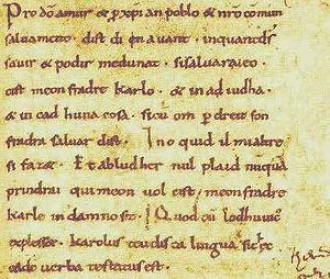 Pro dō amur & pxp̄ian poblo & nrō comun
saluament. dist di en auant. inquantds
sauir & podir medunat. sisaluaraieo.
cist meon fradre karlo. & in ad iudha.
& in cad huna cosa. sicū om p dreit son
fradra saluar dist. Ino quid il mialtre
si faz&. Et abludher nul plaid nūquā
prindrai qui meon uol cist. meon fradre
karle in damno sit. Quod cū lodhuuic
explesset. karolus teudisca lingua. sic hec
eadē uerba testatus est.